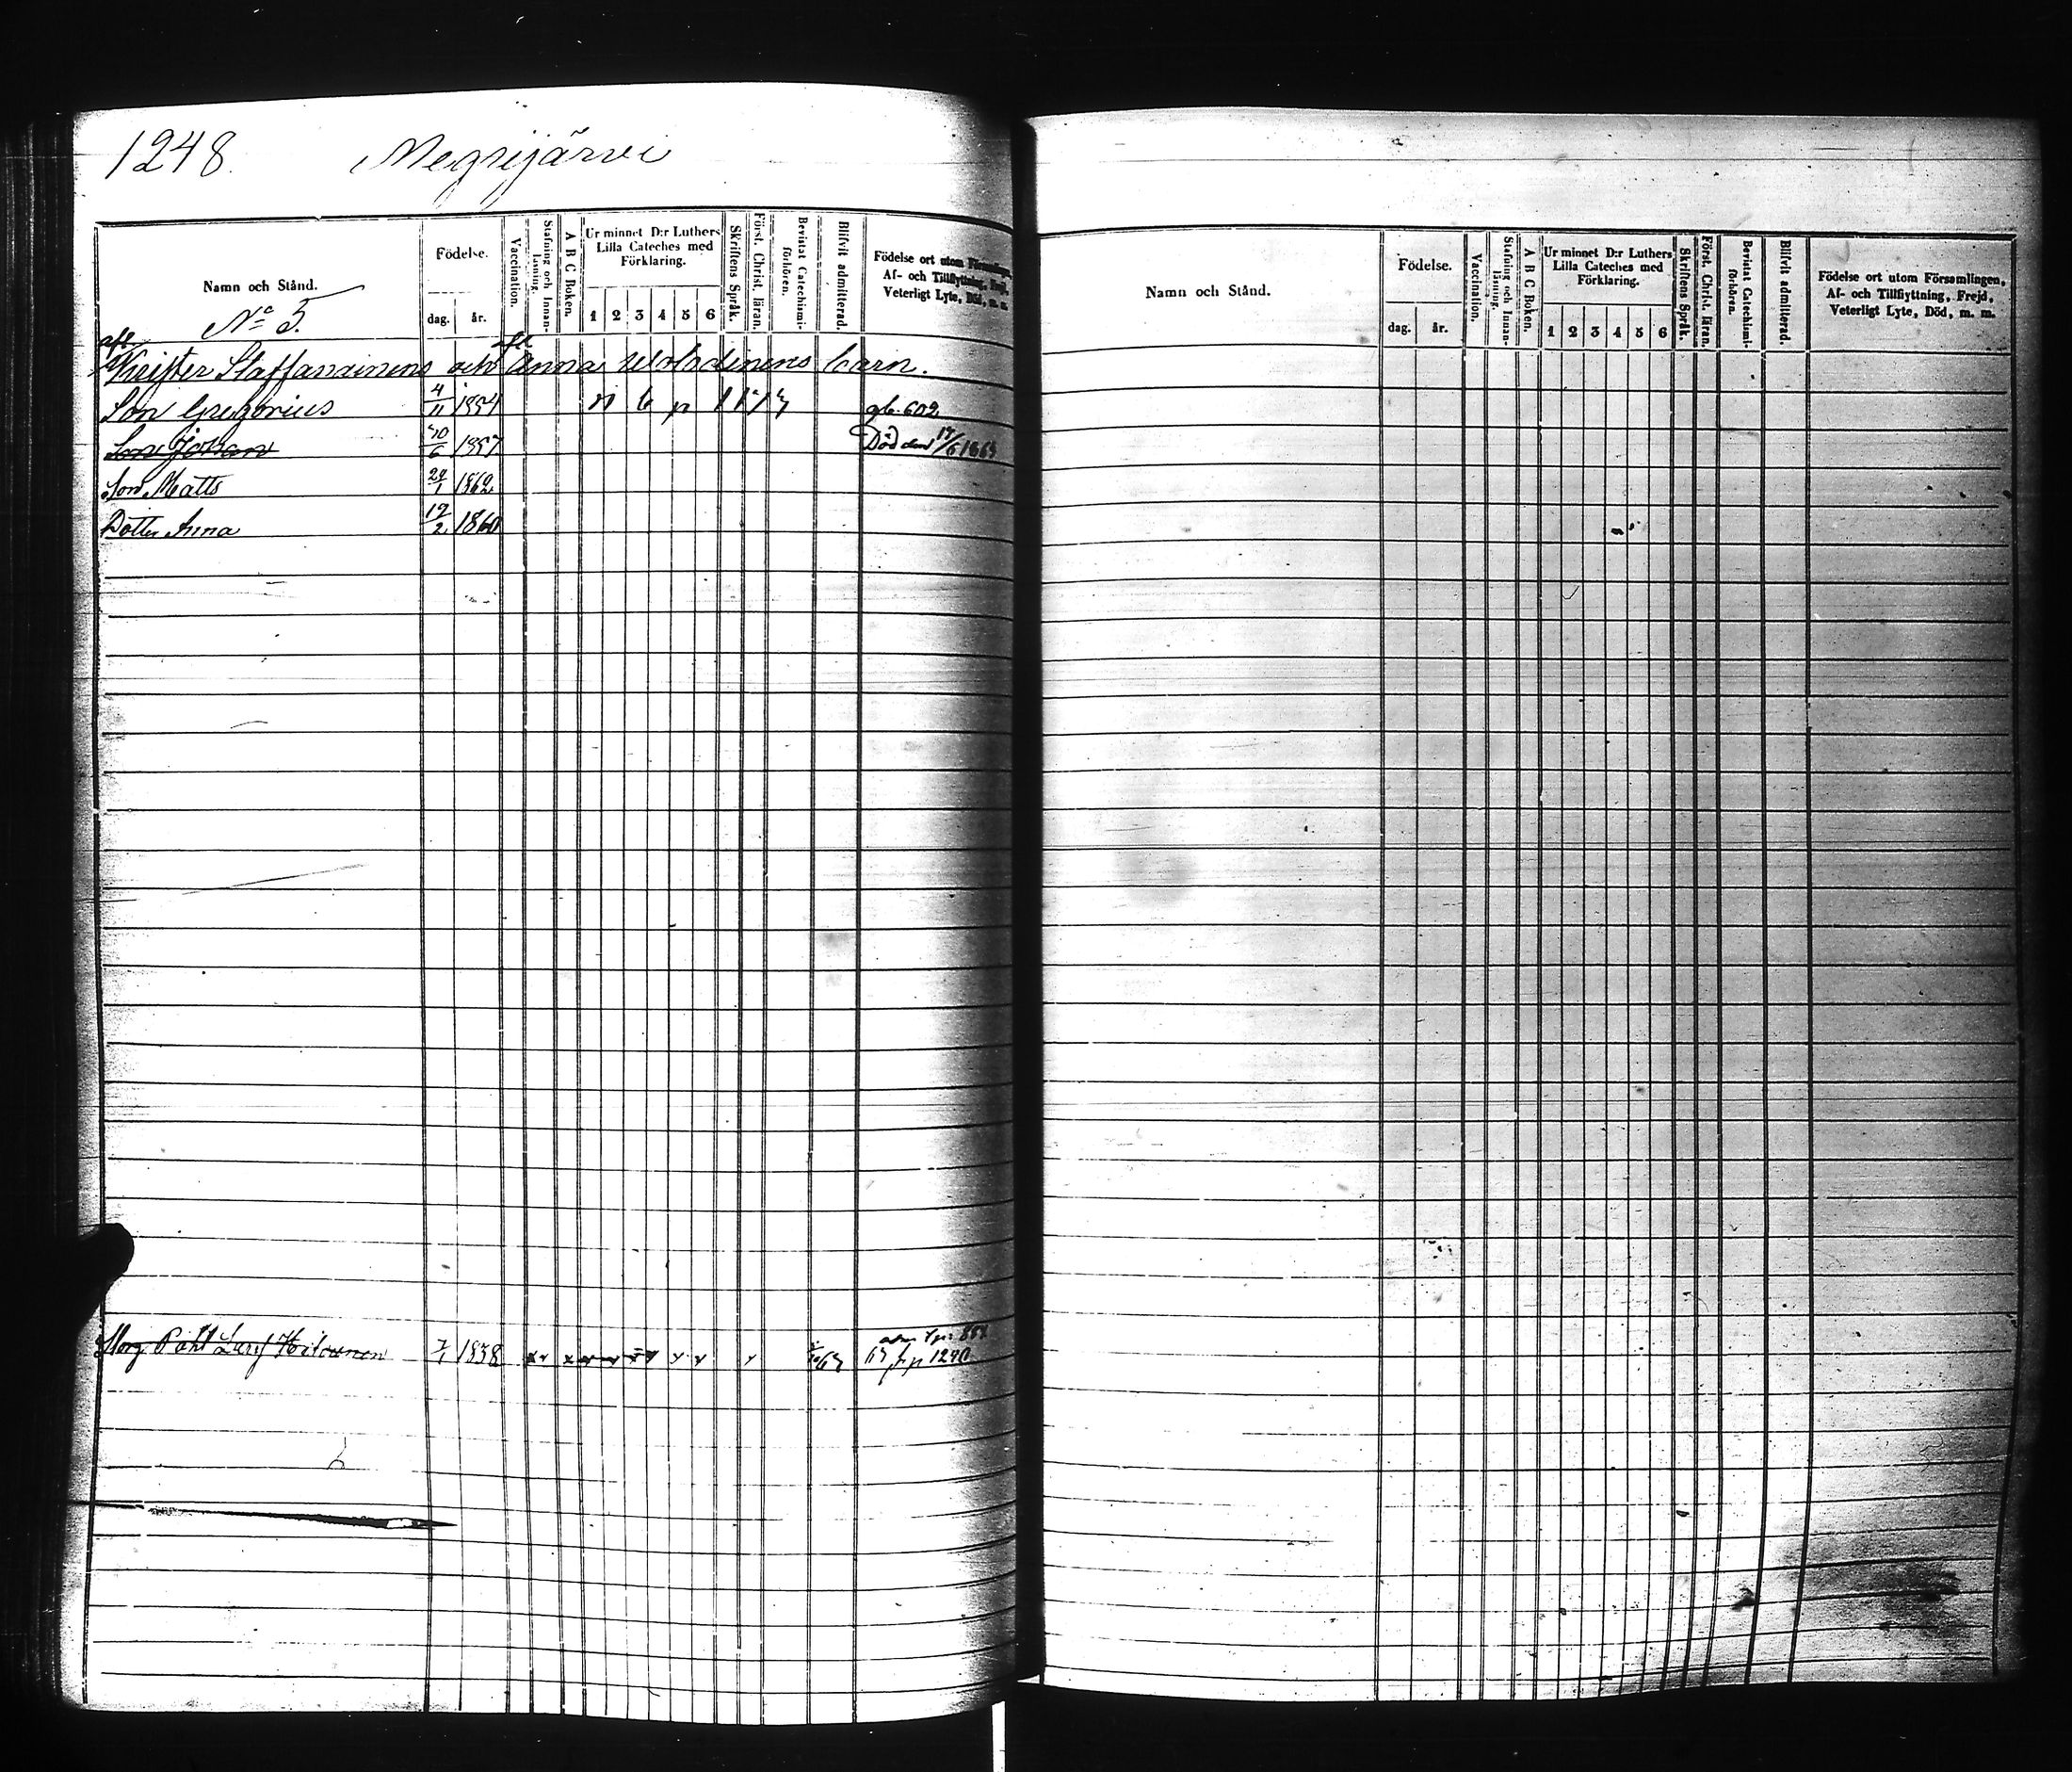 1248. Megrijärvi
Namn och Stånd. Födelse. dag. år. Vaccination. Stafning och Innanläsning. A B C Boken. Ur minnet D:r Luthers Lilla Cateches med Förklaring. 1 2 3 4 5 6 Skriftens Språk. Först. Christ. läran. Bevistat Catechismi-förhören. Blifvit admitterad. Födelse ort utom Församlingen, Af- och Tillflyttning, Frejd, Veterligt Lyte, Död, m. m.
No 5.
afl. afl.
Krister Staffanainens och Anna barn.
Son Gregorius 4/11 1854 gb. 602
Son Johan 10/6 1857 Död den 17/6 1863
Son Matts 24/1 1862
Dotter Anna 19/2 1860
Påhl 7/1 1838 x x x x x 67 1240
Namn och Stånd. Födelse. dag. år. Vaccination. Stafning och Innanläsning. A B C Boken. Ur minnet D:r Luthers Lilla Cateches med Förklaring. 1 2 3 4 5 6 Skriftens Språk. Först. Christ. läran. Bevistat Catechismi-förhören. Blifvit admitterad. Födelse ort utom Församlingen, Af- och Tillflyttning, Frejd, Veterligt Lyte, Död, m. m.